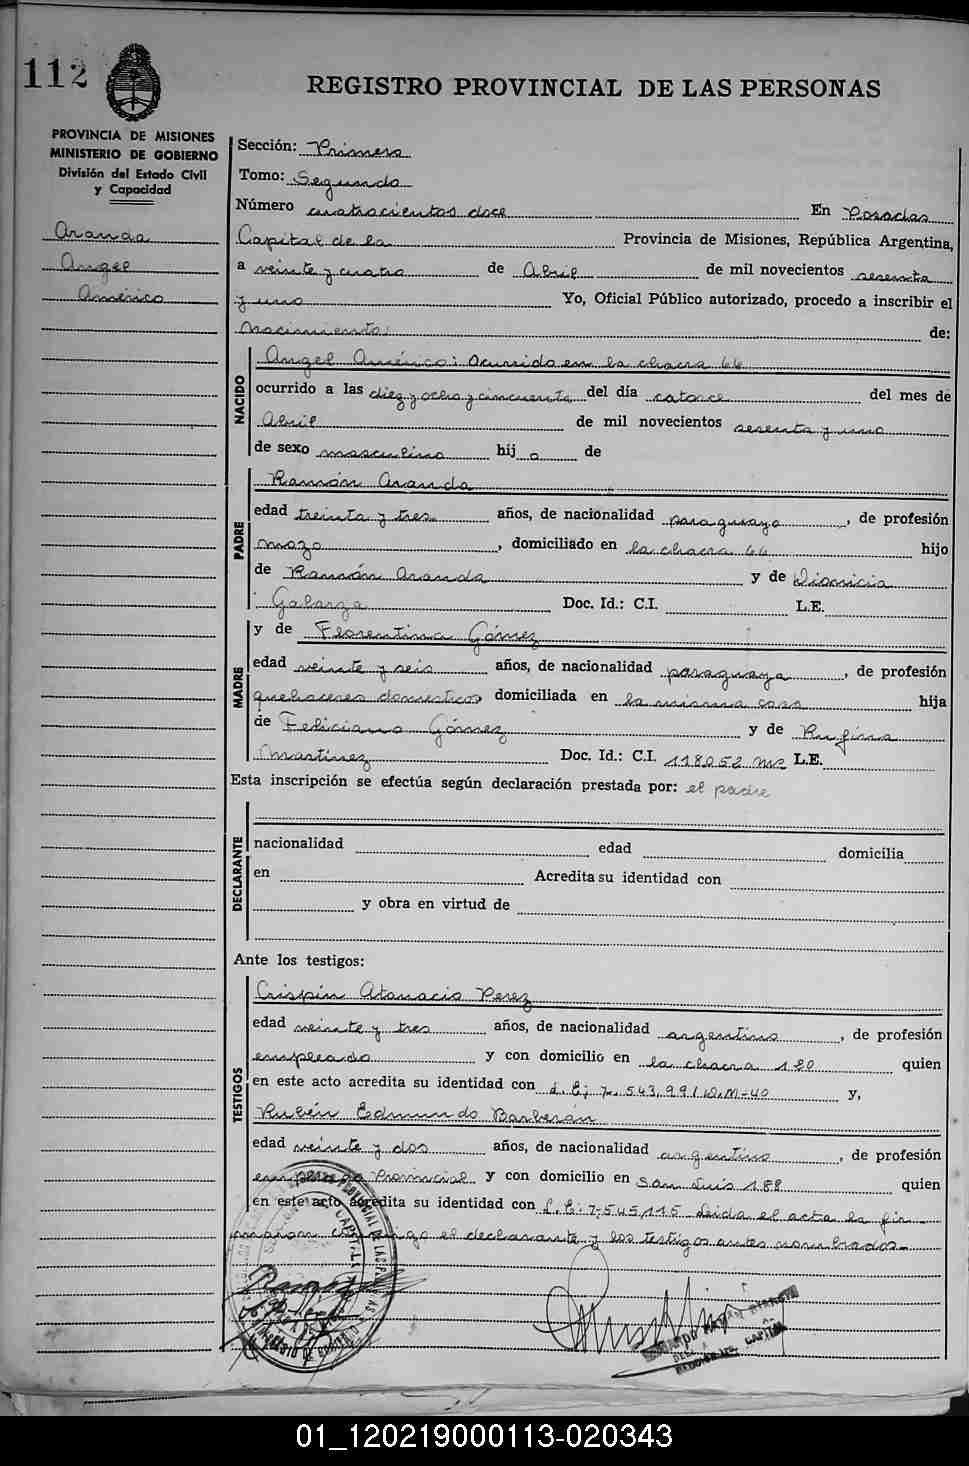 112
REGISTRO PROVINCIAL DE LAS PERSONAS
PROVINCIA DE MISIONES
MINISTERIO DE GOBIERNO
División del Estado Civil
y Capacidad
Aranda
Angel
Américo
Sección: Primera
Tomo: Segundo
Número cuatrocientos doce En Posadas
Capital de la Provincia de Misiones, República Argentina,
a veinte y cuatro de Abril de mil novecientos sesenta
y uno Yo, Oficial Público autorizado, procedo a inscribir el
Nacimiento: de:
NACIDO
Angel Américo: Ocurrido en la chacra 66
ocurrido a las diez y ocho y cincuenta del día catorce del mes de
Abril de mil novecientos sesenta y uno
de sexo masculino hij o de
PADRE
Ramón Aranda
edad treinta y tres años, de nacionalidad paraguayo, de profesión
mozo, domiciliado en la chacra 66 hijo
de Ramón Aranda y de Dionicia
Galarza Doc. Id.: C.I. L.E.
MADRE
y de Florentina Gómez
edad veinte y seis años, de nacionalidad paraguaya, de profesión
quehaceres domesticos domiciliada en la misma casa hija
de Feliciano Gómez y de Rufina
Martínez Doc. Id.: C.I. 118052 Mnes L.E.
Esta inscripción se efectúa según declaración prestada por: el padre
DECLARANTE
nacionalidad edad domicilia
en Acredita su identidad con
y obra en virtud de
Ante los testigos:
TESTIGOS
Crispín Atanacio Perez
edad veinte y tres años, de nacionalidad argentino, de profesión
empleado y con domicilio en la chacra 180 quien
en este acto acredita su identidad con L.E; 7.543,991 D.M-40 y,
Rubén Edmundo Barberán
edad veinte y dos años, de nacionalidad argentino, de profesión
empleado Provincial y con domicilio en San Luis 188 quien
en este acto acredita su identidad con L.E: 7,545,115 Leida el acta la fir-
maron conmigo el declarante y los testigos antes nombrados-
CAPITAL
01_120219000113-020343